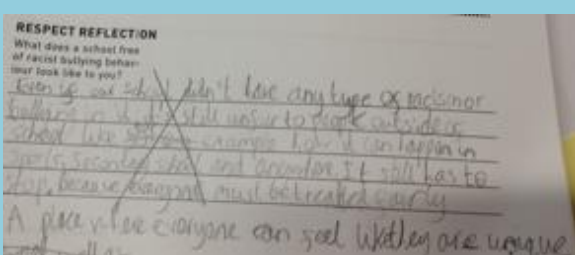 RESPECT REFLECTION
What does a school free
of racist bullying behav-
iour look like to you?
Even if our school didn't have any type of racism or
bullying in it it's still unfair to people outside of
school like example how it can happen in
sports, secondary school and anywhere. It still has to
stop, because everyone must be treated fairly
A place where everyone can feel like they are unique